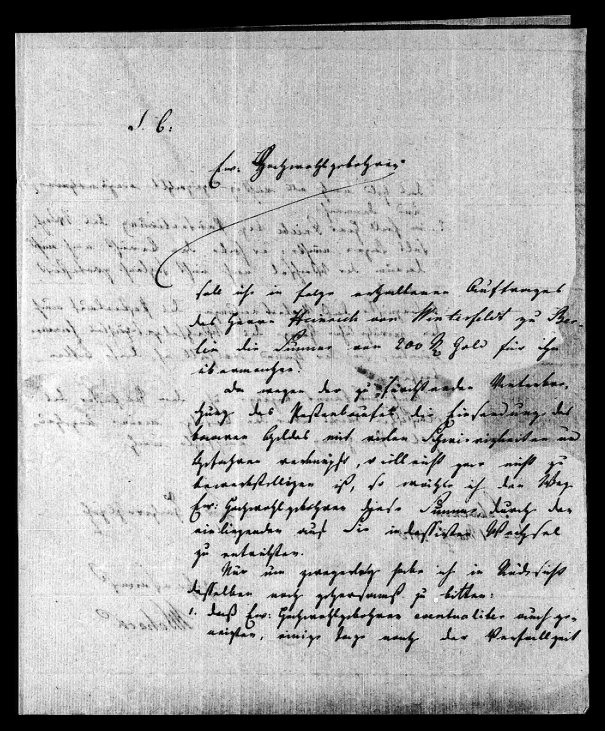 S. C.
Ew: Hochwohlgebohren
soll ich in Folge erhaltenen Auftrages
des Herrn Heinrich von Winterfeldt zu Ber-
lin die Summe von 200 Gold für ihn
übermachen.
Da wegen der zu fürchtenden Unterbre-
chung des Postenlaufes die Einsendung des
baaren Geldes mit vielen Schwierigkeiten und
Gefahren verknüpft, vielleicht gar nicht zu
bewerkstelligen ist, so wähle ich den Weg
Ew: Hochwohlgebohren diese Summe durch den
einliegenden auf Sie indossirten Wechsel
zu entrichten.
Nur um habe ich in Rücksicht
desselben noch gehorsamst zu bitten:
1. daß Ew: Hochwohlgebohren eventualiter auch ge-
neigten, einige Tage nach der Verfallzeit